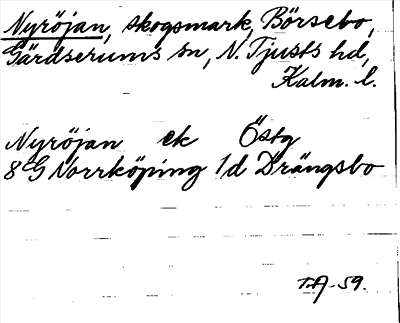 Nyröjan, skogsmark, Börsebo,
Gärdserums sn, N. Tjusts hd,
Kalm. l.
Nyröjan ek Östg
8G Norrköping 1d Drängsbo
T.A-59.